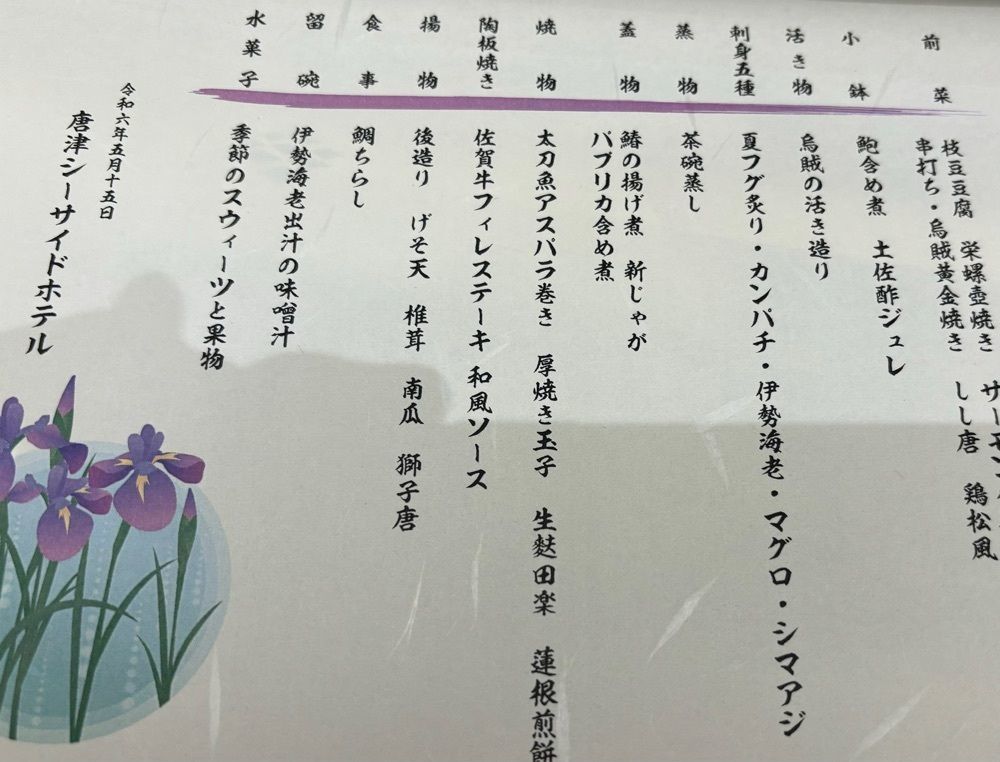 前菜
枝豆豆腐　栄螺壺焼き　サーモン
串打ち・烏賊黄金焼き　しし唐　鶏松風
小鉢
鮑含め煮　土佐酢ジュレ
活き物
烏賊の活き造り
刺身五種
夏フグ炙り・カンパチ・伊勢海老・マグロ・シマアジ
蒸物
茶碗蒸し
蓋物
鰆の揚げ煮　新じゃが
パプリカ含め煮
焼物
太刀魚アスパラ巻き　厚焼き玉子　生麩田楽　蓮根煎餅
陶板焼き
佐賀牛フィレステーキ　和風ソース
揚物
後造り　げそ天　椎茸　南瓜　獅子唐
食事
鯛ちらし
留碗
伊勢海老出汁の味噌汁
水菓子
季節のスウィーツと果物
令和六年五月十五日
唐津シーサイドホテル